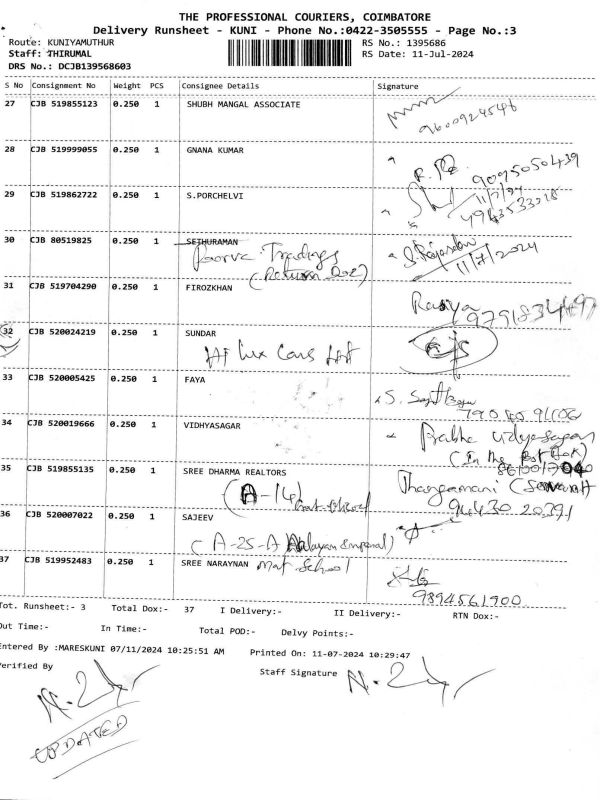 THE PROFESSIONAL COURIERS, COIMBATORE
Delivery Runsheet - KUNI - Phone No.:0422-3505555 - Page No.:3
Route: KUNIYAMUTHUR RS No.: 1395686
Staff: THIRUMAL RS Date: 11-Jul-2024
DRS No.: DCJB139568603
S No Consignment No Weight PCS Consignee Details Signature
27 CJB 519855123 0.250 1 SHUBH MANGAL ASSOCIATE
9600924546
28 CJB 519999055 0.250 1 GNANA KUMAR
9095050439
29 CJB 519862722 0.250 1 S.PORCHELVI
11/7/24
30 CJB 80519825 0.250 1 SETHURAMAN
Poorva Tradings
(Return Doc)
11/7/2024
31 CJB 519704290 0.250 1 FIROZKHAN
Ramya
9791834697
32 CJB 520024219 0.250 1 SUNDAR
33 CJB 520005425 0.250 1 FAYA
34 CJB 520019666 0.250 1 VIDHYASAGAR
Prabha Vidyasagar
(In the Post Box)
35 CJB 519855135 0.250 1 SREE DHARMA REALTORS
(A-14)
Thangamani (Servant)
94430 20291
36 CJB 520007022 0.250 1 SAJEEV
(A-25-A
37 CJB 519952483 0.250 1 SREE NARAYNAN Mat School
9894561900
Tot. Runsheet:- 3 Total Dox:- 37 I Delivery:- II Delivery:- RTN Dox:-
Out Time:- In Time:- Total POD:- Delvy Points:-
Entered By :MARESKUNI 07/11/2024 10:25:51 AM Printed On: 11-07-2024 10:29:47
Verified By Staff Signature
UPDATED